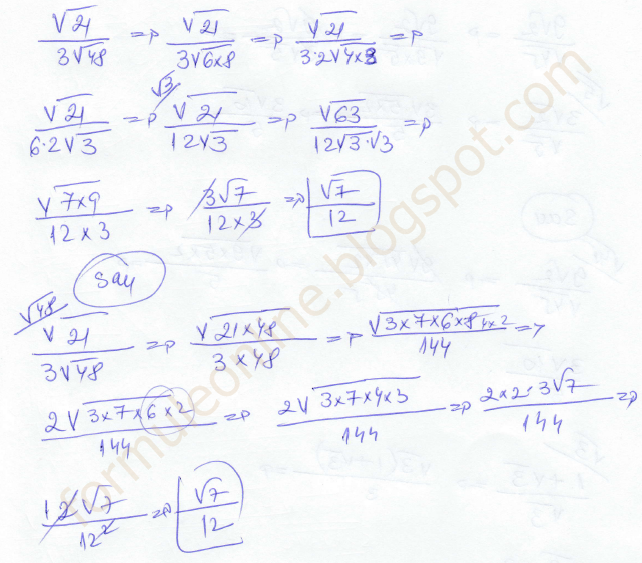 √21/3√48 => √21/3√6×8 => √21/3·2√4×3 =>
√21/6·2√3 => √3/ √21/12√3 => √63/12√3·√3 =>
√7×9/12×3 => 3√7/12×3 => √7/12
Sau
√48/ √21/3√48 => √21×48/3×48 => √3×7×6×8 4×2/144 =>
2√3×7×6×2/144 => 2√3×7×4×3/144 => 2×2·3√7/144 =>
12√7/12² => √7/12
formuleonline.blogspot.com